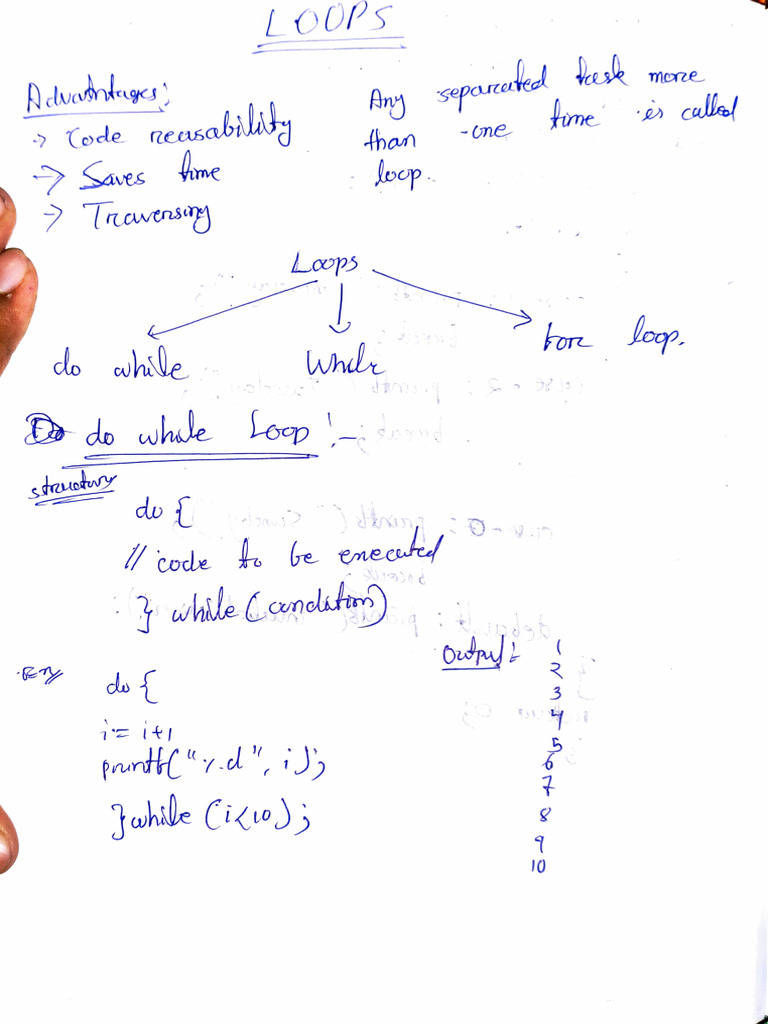 LOOPS
Advantages:
→ Code reusability
→ Saves time
→ Traversing
Any separated task more
than one time is called
loop.
Loops
do while
While
for loop.
do while Loop :-
structure
do {
// code to be executed
} while (condition)
Ex
do {
i = i+1
printf("%d", i);
} while (i<10);
Output :
1
2
3
4
5
6
7
8
9
10